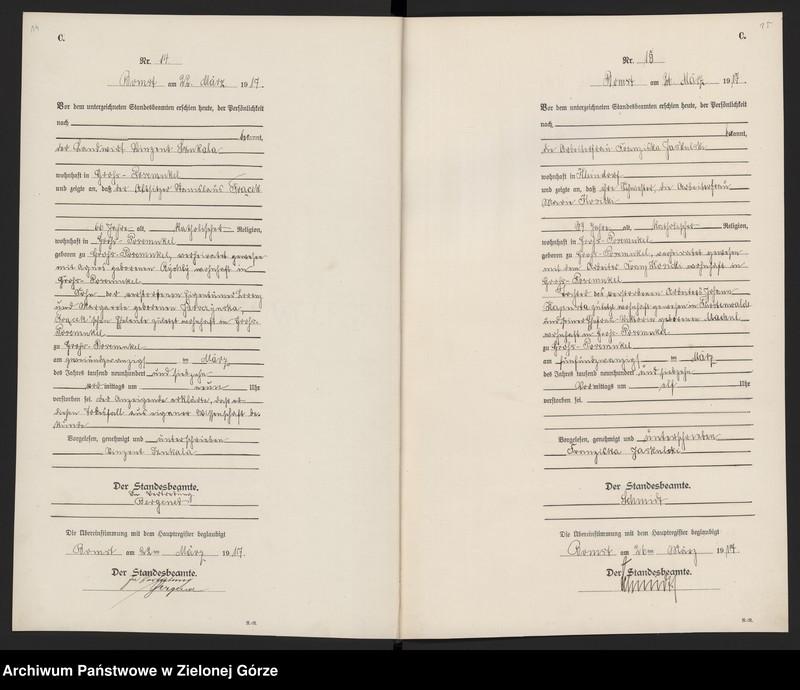 14
C.
Nr. 14
Bomst am 22. März 1917.
Vor dem unterzeichneten Standesbeamten erschien heute, der Persönlichkeit
nach
bekannt,
der Landwirt Vinzent Szukala
wohnhaft in Groß-Posemukel
und zeigte an, daß der Altsitzer Stanislaus
60 Jahre alt, katholischer Religion,
wohnhaft in Groß-Posemukel
geboren zu Groß-Posemukel, verheiratet gewesen
mit Agnes geborenen wohnhaft in
Groß-Posemukel
Sohn der verstorbenen Eigentümer Lorenz
und Margarete geborenen
Eheleute zuletzt wohnhaft in Groß-
Posemukel
zu Groß-Posemukel
am zweiundzwanzigsten März
des Jahres tausend neunhundert und siebzehn
vormittags um neun Uhr
verstorben sei. Der Anzeigende erklärte, daß er
diesen Todesfall aus eigener Wissenschaft be-
kunde
Vorgelesen, genehmigt und unterschrieben
Vinzent Szukala
Der Standesbeamte.
In Vertretung
Die Übereinstimmung mit dem Hauptregister beglaubigt
Bomst am 22ten März 1917.
Der Standesbeamte.
In Vertretung
K.-R.
15
C.
Nr. 15
Bomst am März 1917.
Vor dem unterzeichneten Standesbeamten erschien heute, der Persönlichkeit
nach
bekannt,
die Arbeiterfrau Franziska Jaskulski
wohnhaft in Kleindorf
und zeigte an, daß ihre Schwester, die Arbeiterfrau
Marie
Jahre alt, katholischer Religion,
wohnhaft in Groß-Posemukel
geboren zu Groß-Posemukel, verheiratet gewesen
mit dem Arbeiter Franz wohnhaft in
Groß-Posemukel
Tochter des verstorbenen Arbeiters Johann
zuletzt wohnhaft gewesen in
und seiner Ehefrau Viktoria geborenen
wohnhaft in Groß-Posemukel
zu Groß-Posemukel
am fünfundzwanzigsten März
des Jahres tausend neunhundert und siebzehn
Vormittags um elf Uhr
verstorben sei.
Vorgelesen, genehmigt und unterschrieben
Franziska Jaskulski
Der Standesbeamte.
Schmidt
Die Übereinstimmung mit dem Hauptregister beglaubigt
Bomst am 26ten März 1917.
Der Standesbeamte.
Schmidt
K.-R.
Archiwum Państwowe w Zielonej Górze